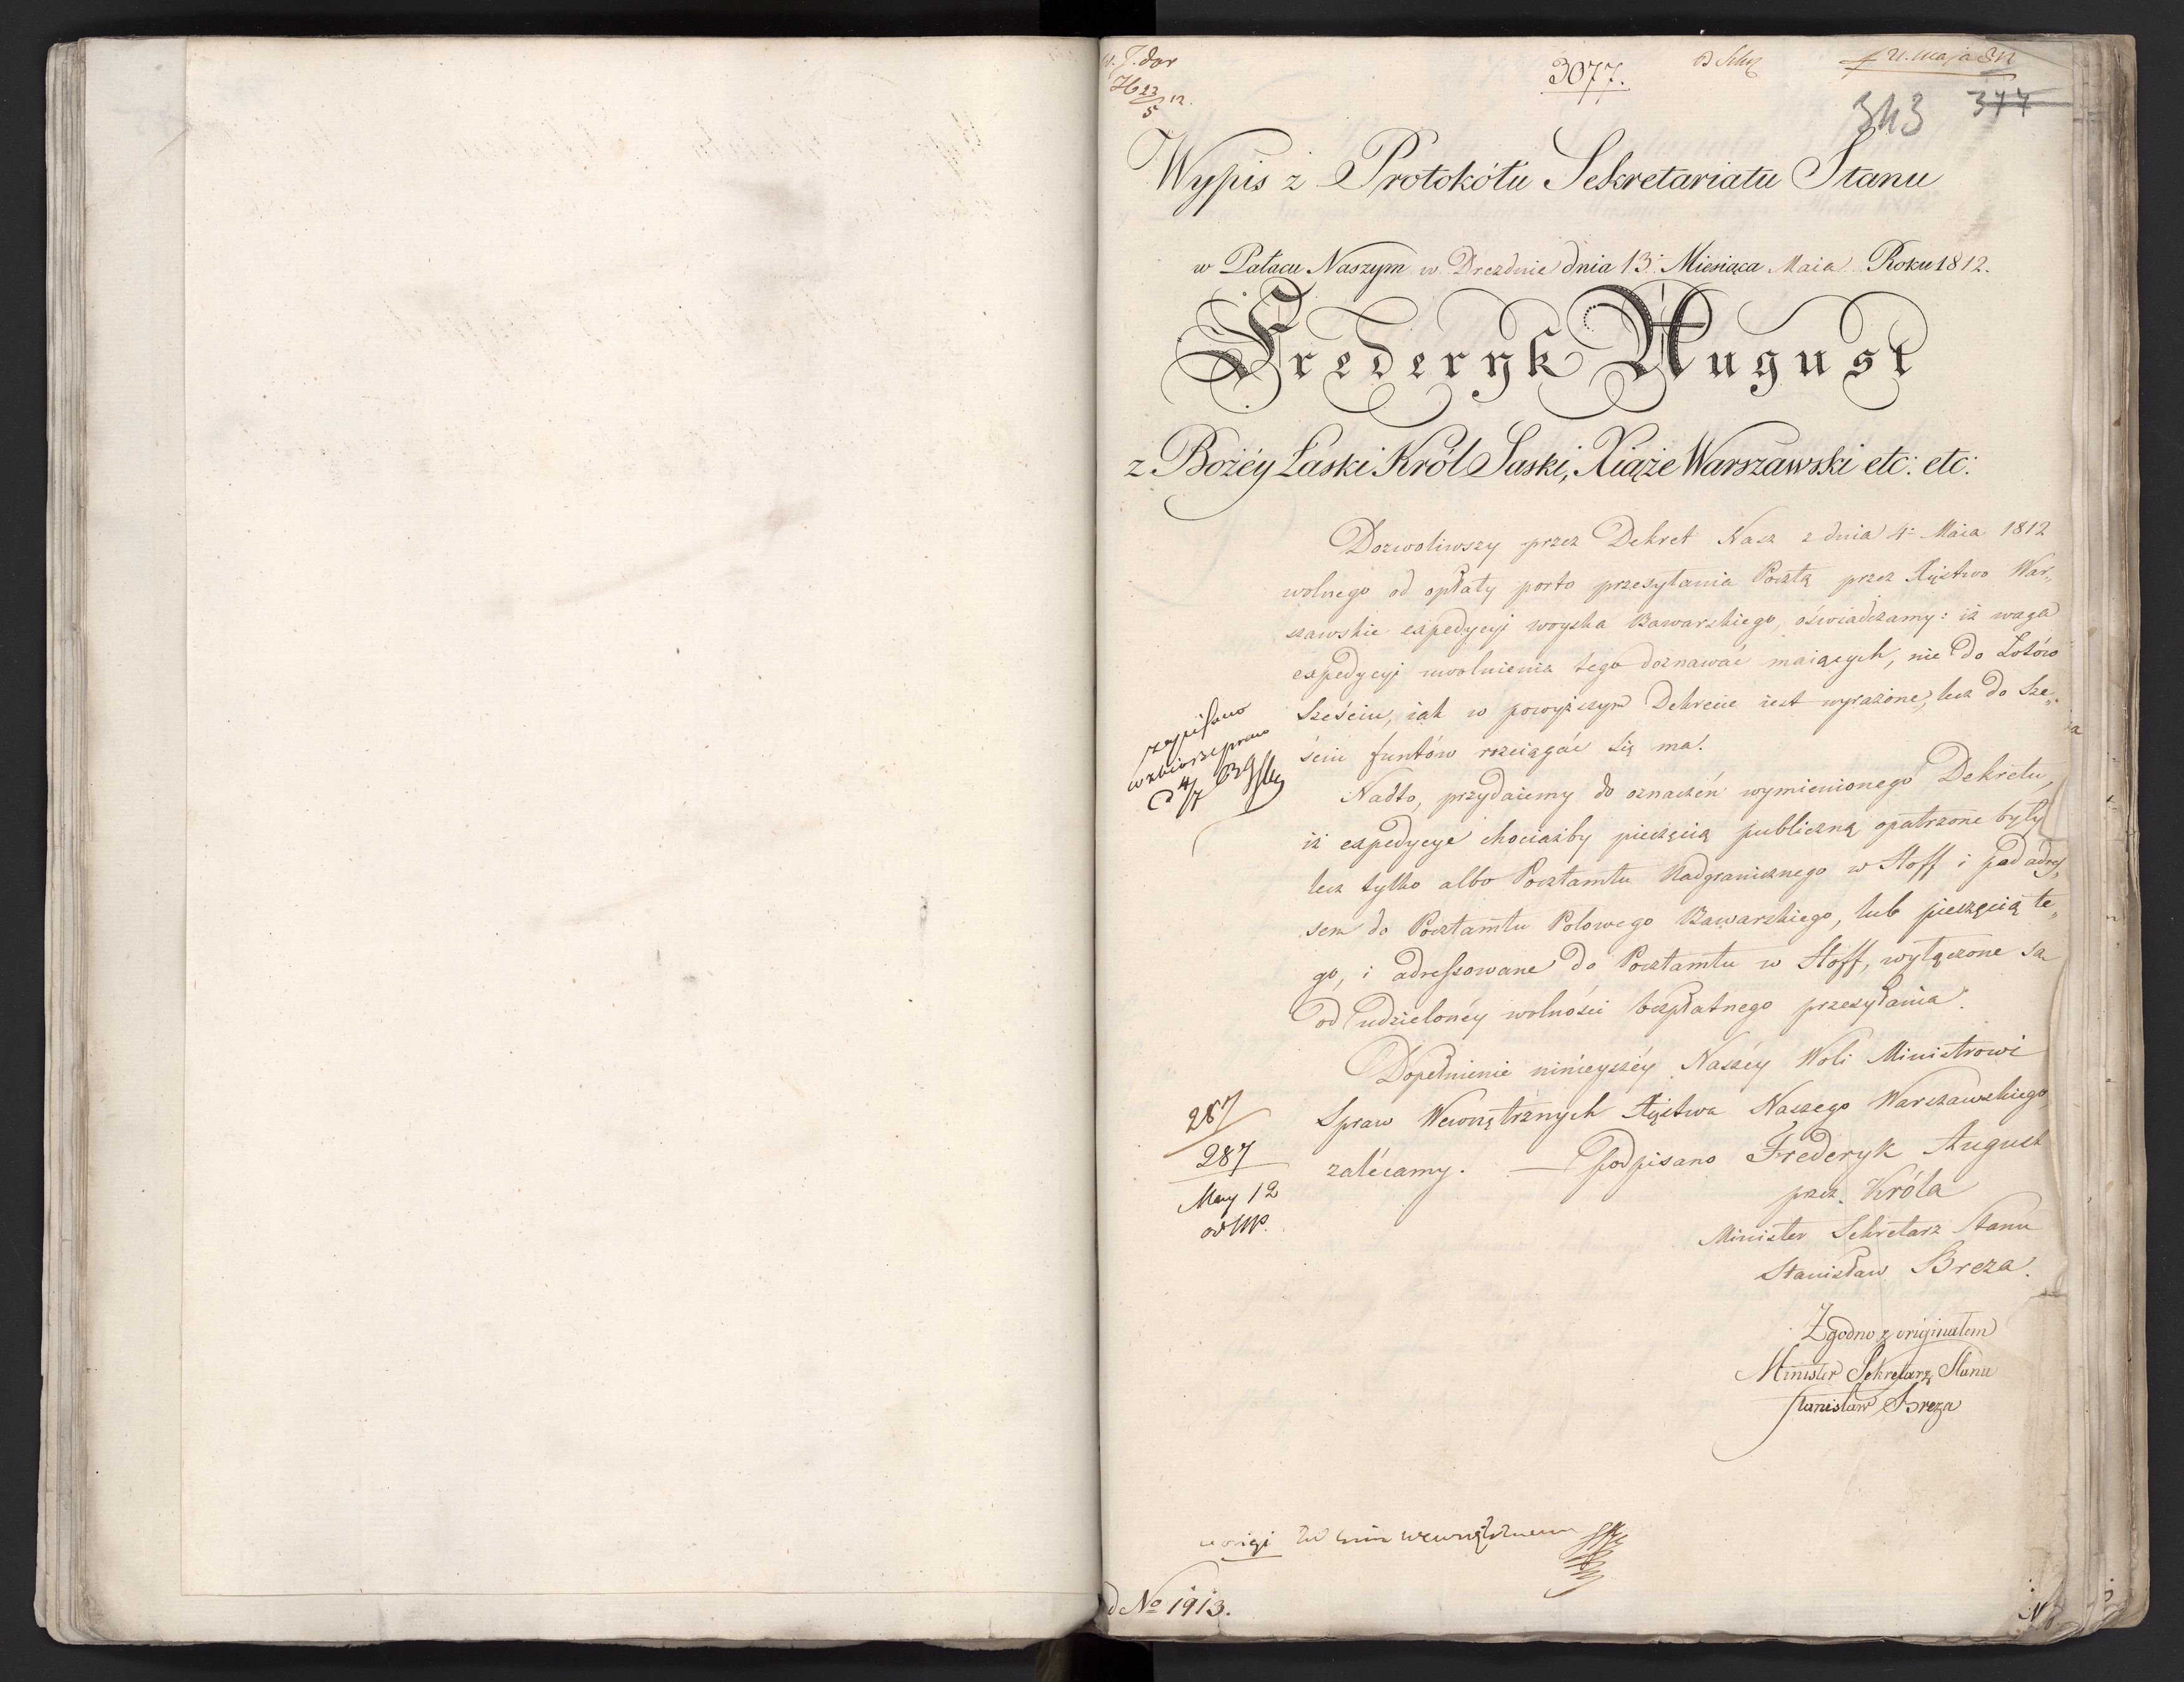 3077.
343 377
Wypis z Protokółu Sekretariatu Stanu
w Pałacu Naszym w Dreznie dnia 13. Miesiąca Maia Roku 1812.
Frederyk August
z Bożéy Łaski Król Saski, Xiąże Warszawski etc: etc:
Dozwoliwszy przez Dekret Nasz z dnia 4. Maia 1812
wolnego od opłaty porto przesyłania Pocztą przez Xięstwo War„
szawskie expedycyi woyska Bawarskiego, oświadczamy: iż waga
expedycyi uwolnienia tego doznawać maiących, nie do Łótów
Sześciu, iak w powyższym Dekrecie iest wyrażone, lecz do Sze„
ściu funtów rozciągać się ma.
Nadto, przydaiemy do oznaczeń wymienionego Dekretu,
iż expedycye chociażby pieczęcią publiczną opatrzone były
lecz tylko albo Pocztamtu Nadgranicznego w Hoff i pod adres„
sem do Pocztamtu Polowego Bawarskiego, lub pieczęcią te„
go, i adressowane do Pocztamtu w Hoff, wyłączone są
od udzielonéy wolności bezpłatnego przesyłania.
Dopełnienie ninieyszéy Naszéy Woli Ministrowi
Spraw Wewnętrznych Xięstwa Naszego Warszawskiego,
zalécamy. — podpisano Frederyk August
przez Króla
Minister Sekretarz Stanu
Stanisław Breza.
Zgodno z originałem
Minister Sekretarz Stanu
Stanisław Breza
zapisano
w zbiorze praw
d 4/7
287
287
May 12
w min wewnętrznem
d No 1913.